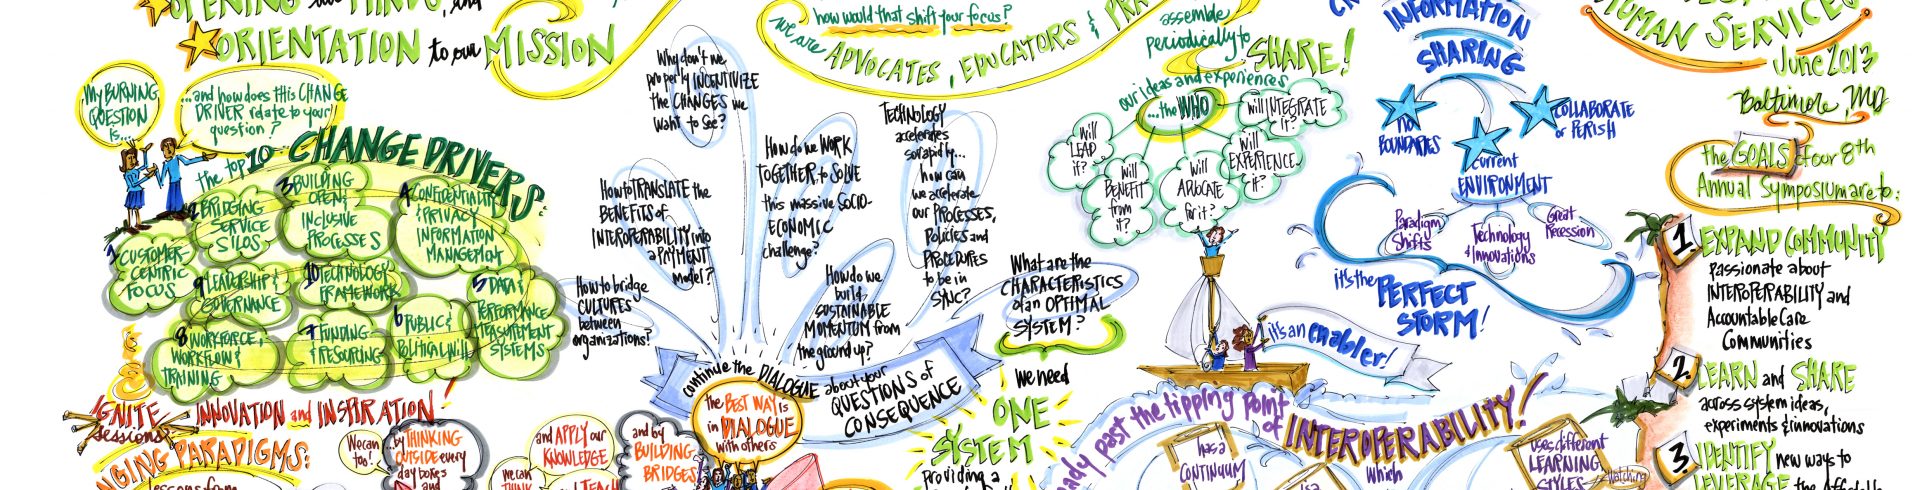 OPENING our MINDS, and
ORIENTATION to our MISSION
MY BURNING
QUESTION
is...
...and how does this CHANGE
DRIVER relate to your
question?
the top 10 CHANGE DRIVERS:
1 CUSTOMER-
CENTRIC
FOCUS
2 BRIDGING
SERVICE
SILOS
3 BUILDING
OPEN &
INCLUSIVE
PROCESSES
4 CONFIDENTIALITY
& PRIVACY
INFORMATION
MANAGEMENT
5 DATA &
PERFORMANCE
MEASUREMENT
SYSTEMS
6 PUBLIC &
POLITICAL Will
7 FUNDING
& RESOURCING
8 WORKFORCE,
WORKFLOW &
TRAINING
9 LEADERSHIP &
GOVERNANCE
10 TECHNOLOGY
FRAMEWORK
IGNITE
sessions
INNOVATION and INSPIRATION
PARADIGMS:
lessons from
We can
too!
by THINKING
OUTSIDE every
day boxes
and
we can
THINK
and APPLY our
KNOWLEDGE
and TEACH
and by
BUILDING
BRIDGES
the BEST WAY is
in DIALOGUE
with others
how would that shift your focus?
we are ADVOCATES, EDUCATORS &
Why don't we
properly INCENTIVIZE
the CHANGES we
want to see?
How to TRANSLATE the
BENEFITS of
INTEROPERABILITY into
a PAYMENT
Model?
How to bridge
CULTURES
between
organizations?
How do we WORK
TOGETHER to SOLVE
this massive SOCIO-
ECONOMIC
challenge?
How do we
build
SUSTAINABLE
MOMENTUM from
the ground up?
TECHNOLOGY
accelerates
so rapidly...
how can
we accelerate
our PROCESSES,
POLICIES and
PROCEDURES
to be in
SYNC?
What are the
CHARACTERISTICS
of an OPTIMAL
SYSTEM?
continue the DIALOGUE about your
QUESTIONS of
CONSEQUENCE
We need
ONE
SYSTEM
Providing a
assemble
periodically to SHARE!
our ideas and experiences
...the WHO
Will
LEAD
it?
Will
BENEFIT
from
it?
Will
ADVOCATE
for it?
Will
EXPERIENCE
it?
Will INTEGRATE
it?
it's an enabler!
past the tipping point
of INTEROPERABILITY!
has a
CONTINUUM
is a
Which
uses different
LEARNING
STYLES
Watching
INFORMATION
SHARING
NO
BOUNDARIES
COLLABORATE
or PERISH
Current
ENVIRONMENT
Paradigm
Shifts
Technology
& Innovations
Great
Recession
it's the PERFECT
STORM!
HUMAN SERVICES
June 2013
Baltimore, MD
the GOALS of our 8th
Annual Symposium are to:
1. EXPAND COMMUNITY
Passionate about
INTEROPERABILITY and
Accountable Care
Communities
2. LEARN and SHARE
across system ideas,
experiments & innovations
3. IDENTIFY new ways to
LEVERAGE the Affordable